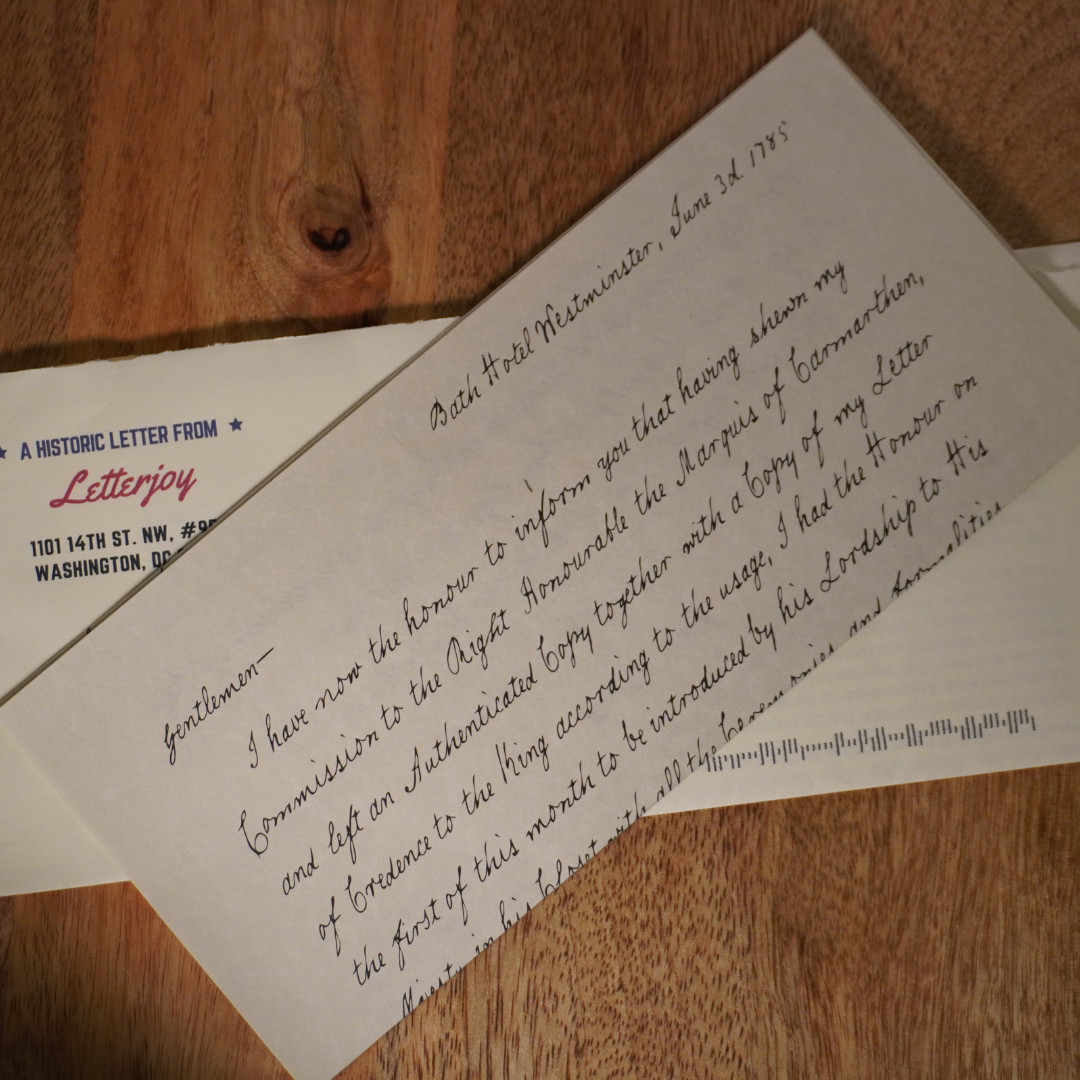 A HISTORIC LETTER FROM
Letterjoy
1101 14TH ST. NW,
WASHINGTON, DC
Bath Hotel Westminster, June 3d 1785
Gentlemen—
I have now the honour to inform you that having shewn my
Commission to the Right Honourable the Marquis of Carmarthen,
and left an Authenticated Copy together with a Copy of my Letter
of Credence to the King according to the usage, I had the Honour on
the first of this month to be introduced by his Lordship to His
Majesty in his Closet with all the Ceremonies and formalities